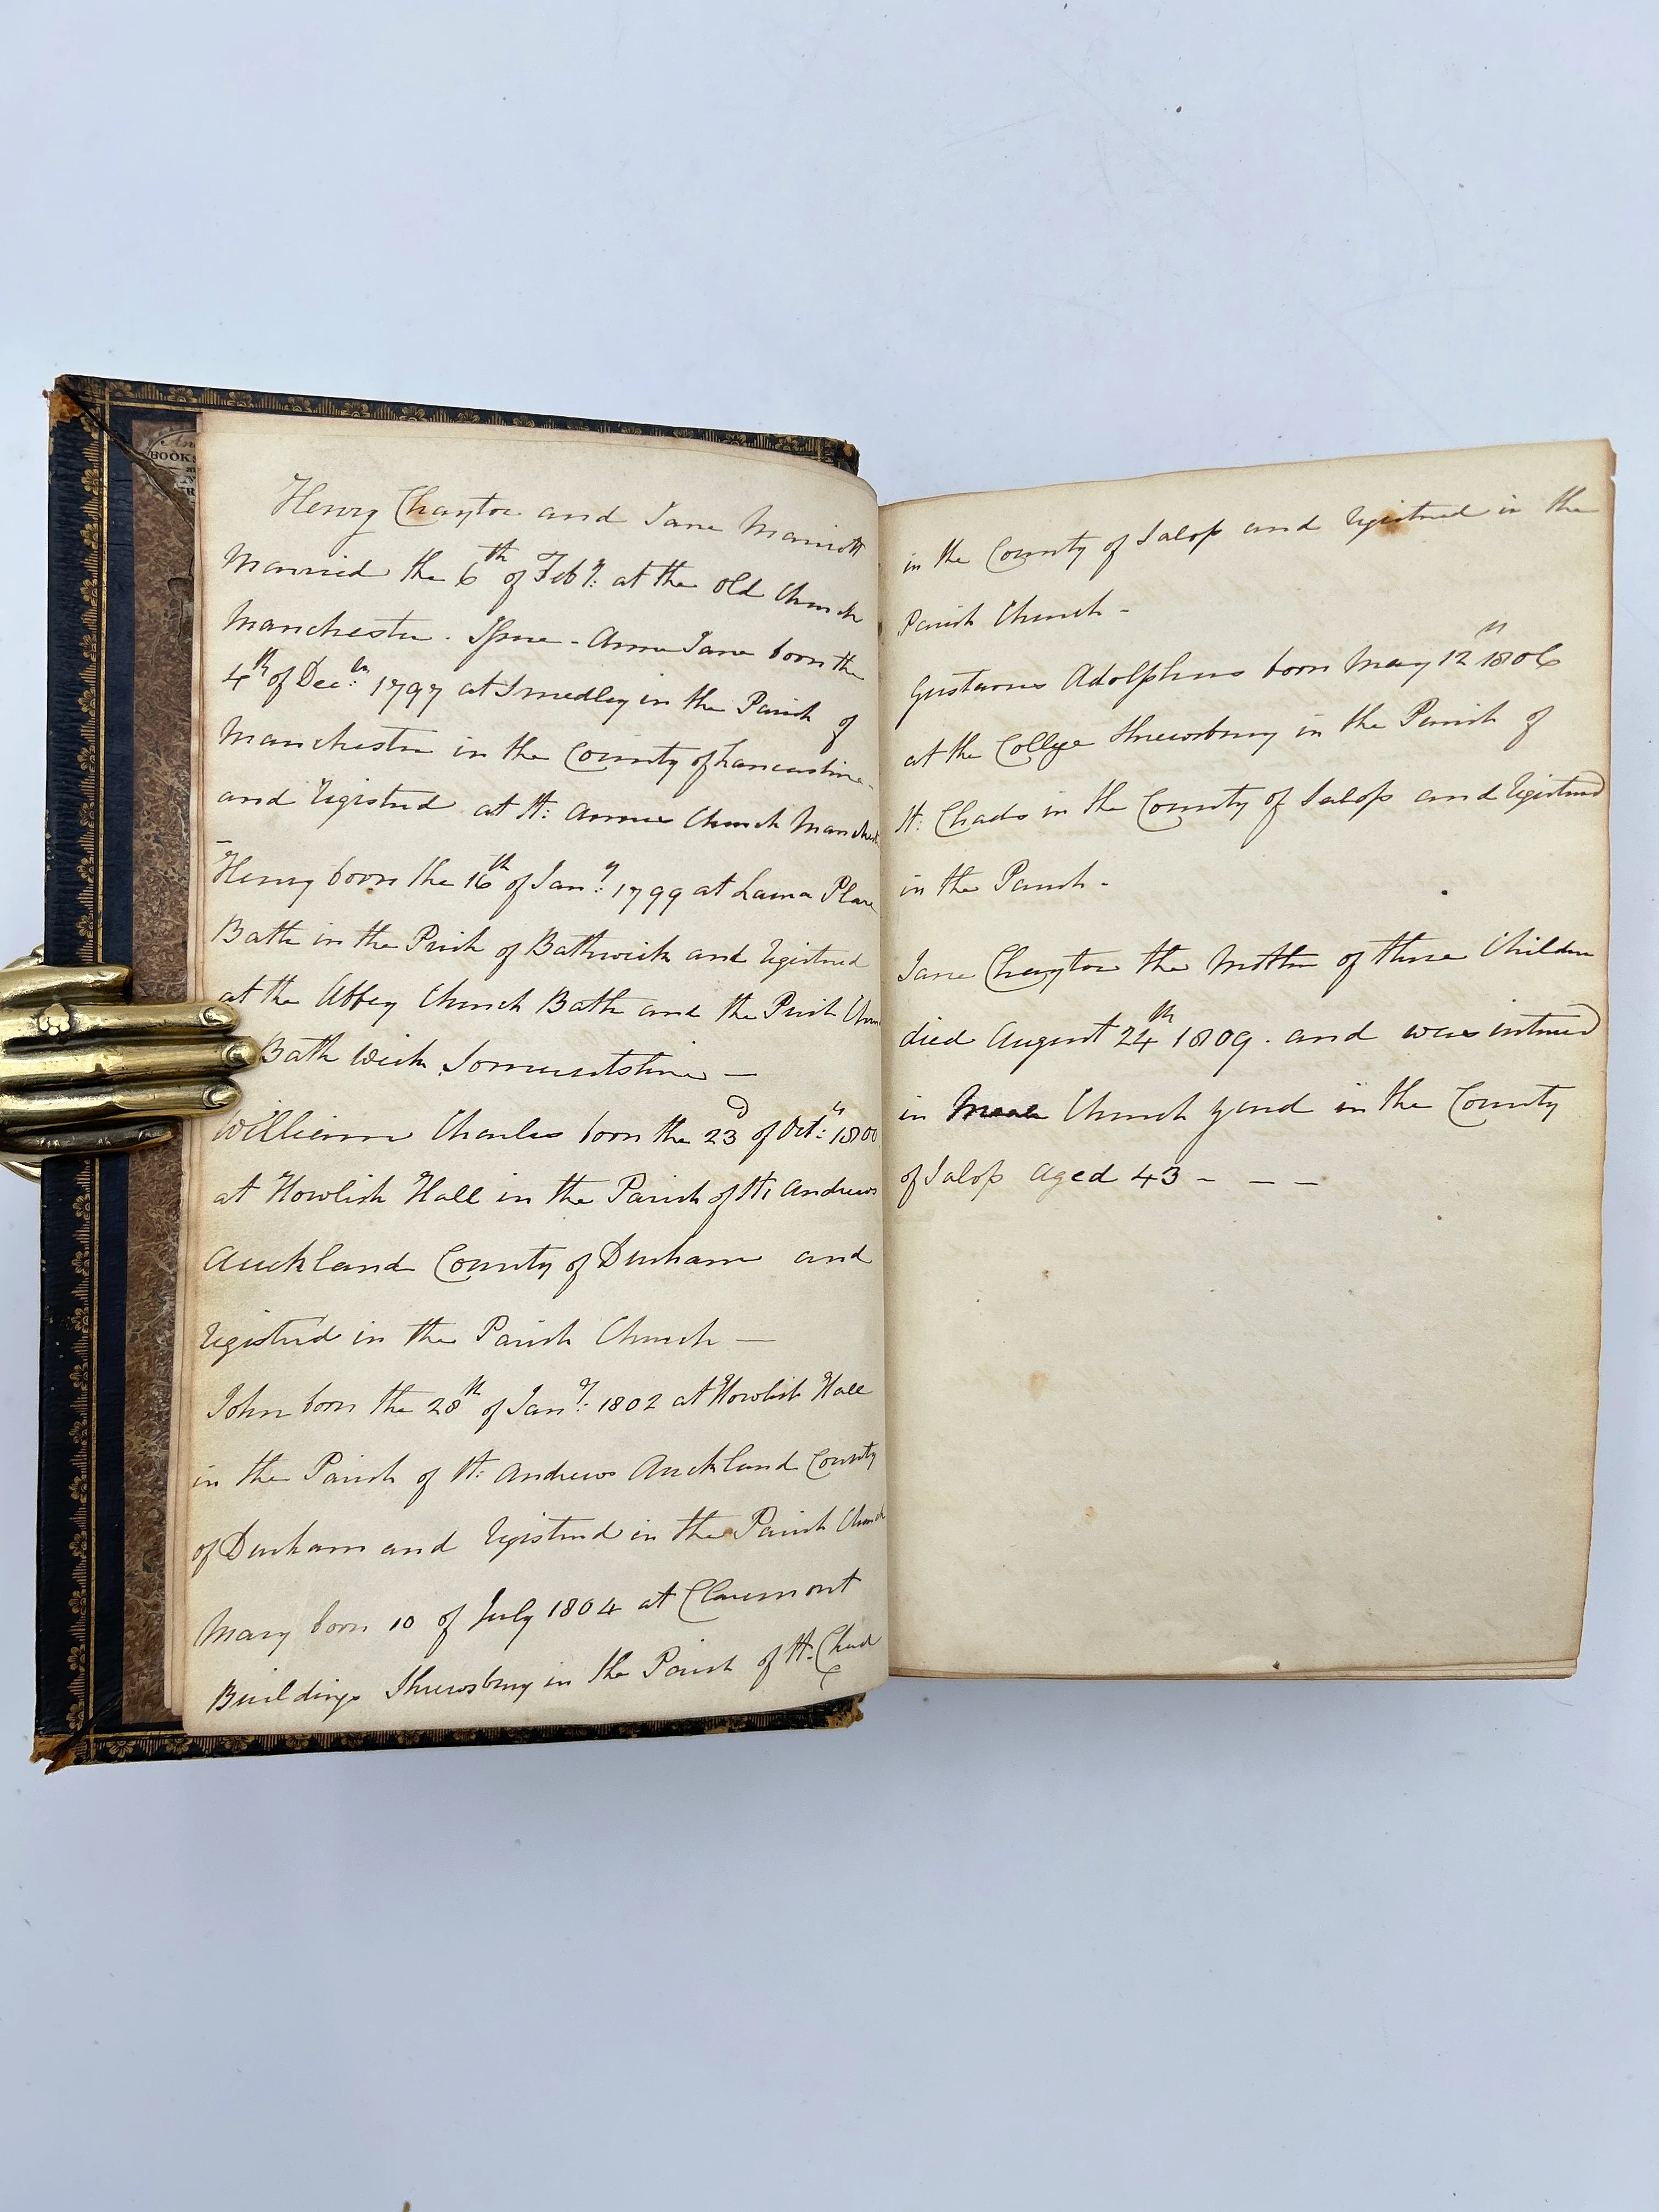 BOOKS
Henry Chaytor and Jane Marriott
Married the 6th of Feby: at the Old Church
Manchester. Issue - Anne Jane born the
4th of Decr: 1797 at Smedley in the Parish of
Manchester in the County of Lancashire
and registred at St: Annes Church Manchest
Henry born the 16th of Jany: 1799 at Laura Place
Bath in the Prish of Bathwick and registred
at the Abbey Church Bath and the Prish Chur
Bath Wick Somersetshire —
William Charles born the 23d of Octr: 1800
at Howlish Hall in the Parish of St: Andrews
Auckland County of Durham and
registred in the Parish Church —
John born the 28th of Jany: 1802 at Howlish Hall
in the Parish of St: Andrews Auckland County
of Durham and registred in the Parish Church
Mary born 10 of July 1804 at Claremont
Buildings Shrewsbury in the Parish of St: Chad
in the County of Salop and registred in the
Parish Church -
Gustavus Adolphus born May 12th 1806
at the College Shrewsbury in the Parish of
St: Chads in the County of Salop and registred
in the Parish -
Jane Chaytor the Mother of these Children
died August 24th 1809. and was interred
in Meole Church yard in the County
of Salop aged 43 - — —